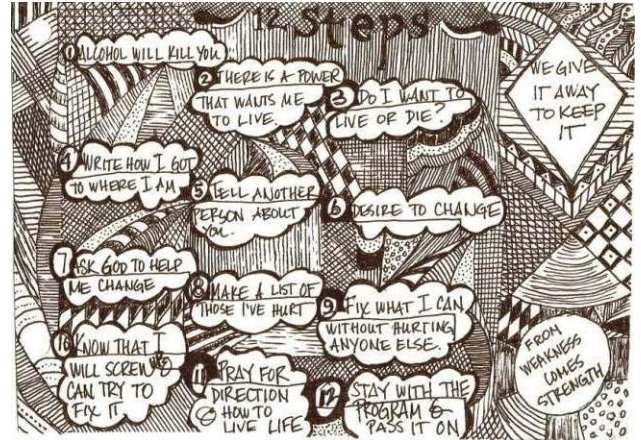 12 Steps
1 ALCOHOL WILL KILL YOU
2 THERE IS A POWER
THAT WANTS ME
TO LIVE.
3 DO I WANT TO
LIVE OR DIE?
4 WRITE HOW I GOT
TO WHERE I AM
5 TELL ANOTHER
PERSON ABOUT
YOU.
6 DESIRE TO CHANGE
7 ASK GOD TO HELP
ME CHANGE
8 MAKE A LIST OF
THOSE I'VE HURT
9 FIX WHAT I CAN
WITHOUT HURTING
ANYONE ELSE.
10 KNOW THAT I
WILL SCREW UP &
CAN TRY TO
FIX IT
11 PRAY FOR
DIRECTION
& HOW TO
LIVE LIFE
12 STAY WITH THE
PROGRAM &
PASS IT ON
WE GIVE
IT AWAY
TO KEEP
IT
FROM
WEAKNESS
COMES
STRENGTH